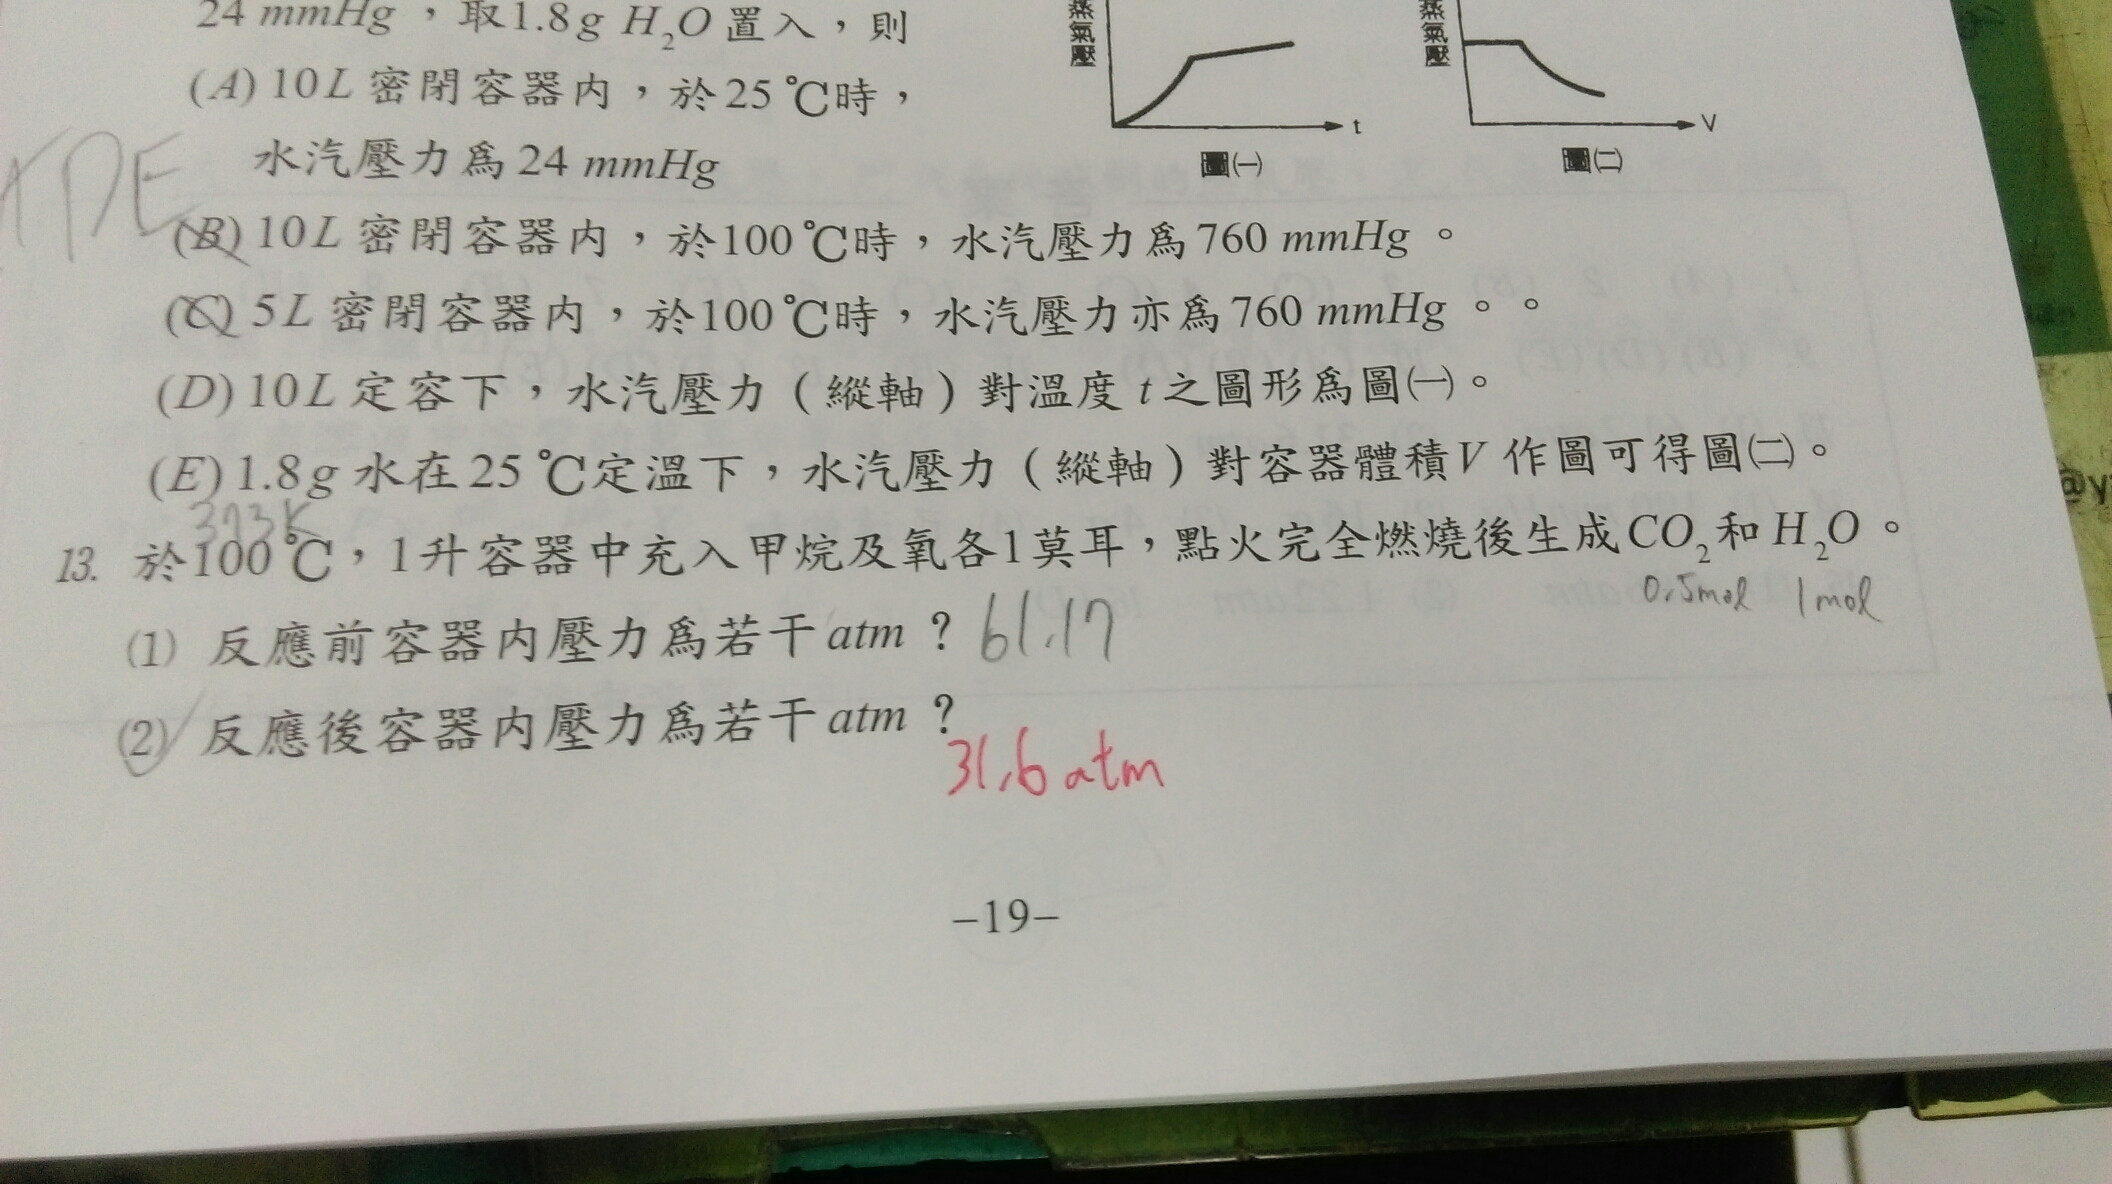 24 mmHg，取1.8g H₂O置入，則
(A) 10L 密閉容器內，於25℃時，
水汽壓力爲24 mmHg
蒸氣壓
t
圖㈠
蒸氣壓
V
圖㈡
DE
(B) 10L 密閉容器內，於100℃時，水汽壓力爲760 mmHg。
(C) 5L 密閉容器內，於100℃時，水汽壓力亦爲760 mmHg。。
(D) 10L 定容下，水汽壓力（縱軸）對溫度 t 之圖形爲圖㈠。
(E) 1.8g 水在25℃定溫下，水汽壓力（縱軸）對容器體積V 作圖可得圖㈡。
373K
13. 於100℃，1升容器中充入甲烷及氧各1莫耳，點火完全燃燒後生成CO₂和H₂O。
0.5mol 1mol
(1) 反應前容器內壓力爲若干atm？61.17
(2) 反應後容器內壓力爲若干atm？
31.6 atm
-19-